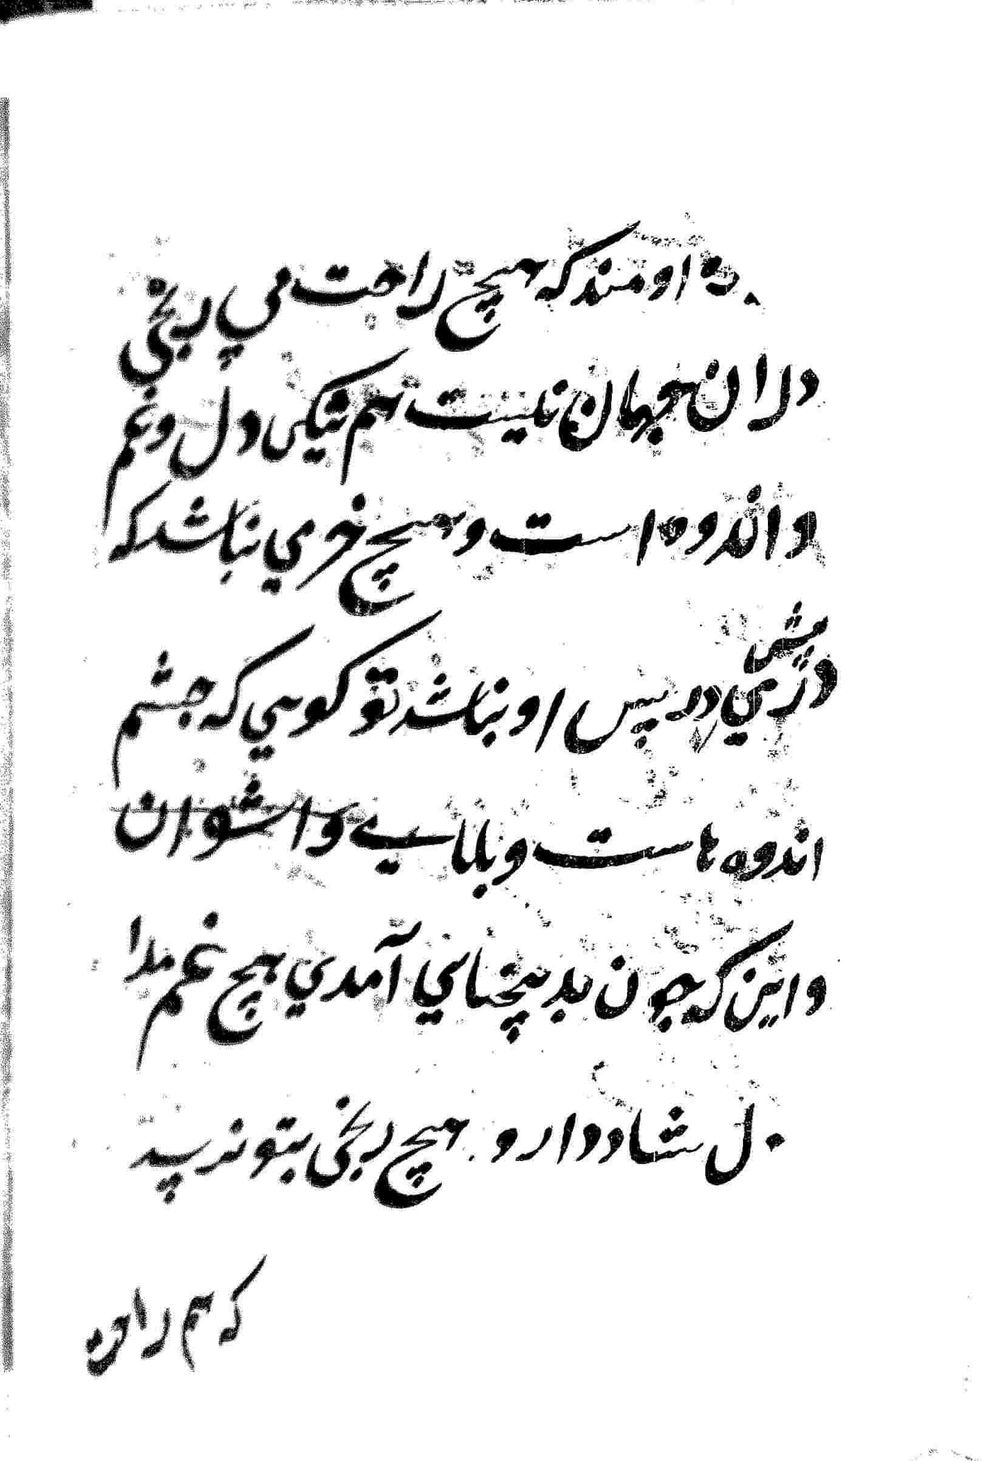 اومند که هیچ راحت می پی رنجی
در ان جهان نیست هم نیکی دل و غم
و اندوه است و هیچ خرمی نباشد که
در پس او نباشد تو کوهی که چشم
اندوه هاست و بالاسیی و اشوان
و این که چون بد پیختاسی آمدی هیچ غم مدا
دل شاد دار و هیچ رنجی بتو نرسد
که هم راحت